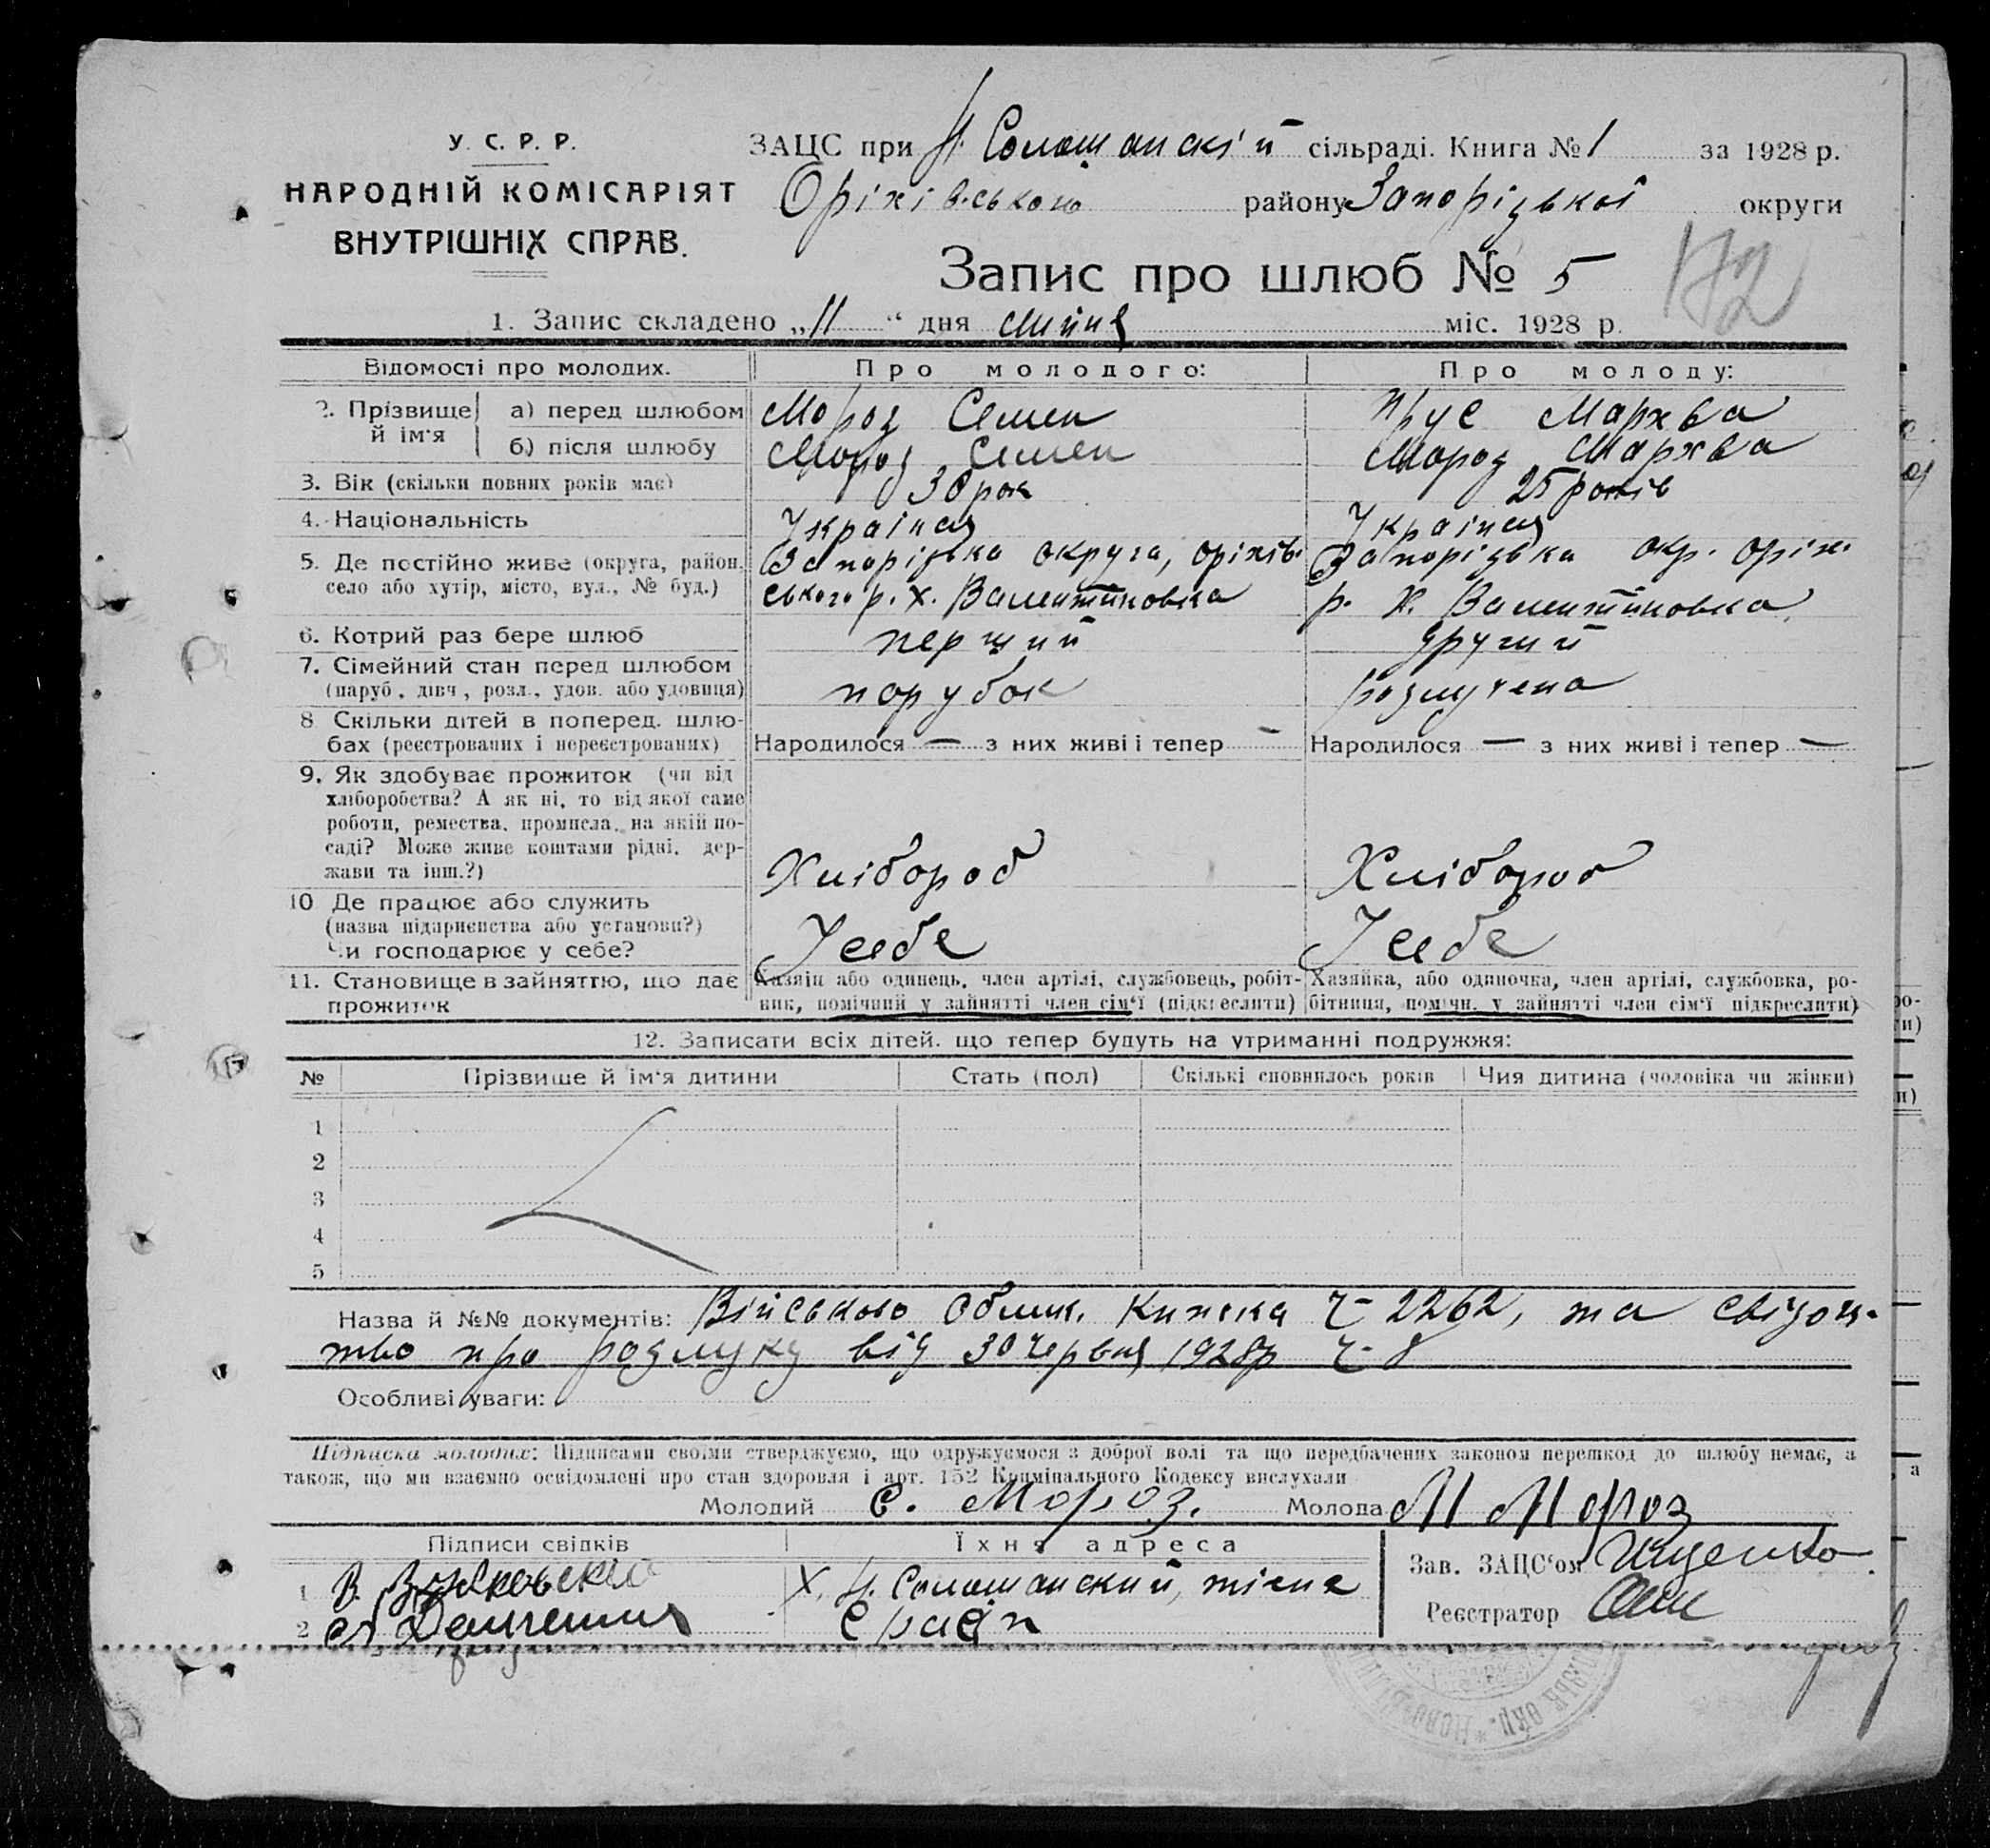 У. С. Р. Р.
НАРОДНІЙ КОМІСАРІЯТ
ВНУТРІШНІХ СПРАВ.
ЗАЦС при Н. Солошанскій сільраді. Книга № 1 за 1928 р.
Оріхівського району Запорізької округи
172
Запис про шлюб № 5
1. Запис складено „11“ дня липня міс. 1928 р.
Відомості про молодих. Про молодого: Про молоду:
2. Прізвище й ім'я а) перед шлюбом Мороз Семен Прус Мархва
б) після шлюбу Мороз Семен Мороз Мархва
3. Вік (скільки повних років має) 30 рок 25 років
4. Національність Українця Українця
5. Де постійно живе (округа, район, Запорізька округа, оріхів- Запорізька окр. оріх.
село або хутір, місто, вул., № буд.) ського р. х. Валентиновка р. х. Валентиновка
6. Котрий раз бере шлюб перший другий
7. Сімейний стан перед шлюбом
(паруб., дівч., розл., удов. або удовиця) порубок розлучена
8 Скільки дітей в поперед. шлю-
бах (реєстрованих і нереєстрованих) Народилося — з них живі і тепер — Народилося — з них живі і тепер —
9. Як здобуває прожиток (чи від
хліборобства? А як ні, то від якої саме
роботи, ремества, промисла, на якій по-
саді? Може живе коштами рідні, дер-
жави та інш.?) Хлібороб Хлібороб
10 Де працює або служить
(назва підприємства або установи?)
Чи господарює у себе? У себе У себе
11. Становище в зайняттю, що дає Хазяїн або одинець, член артілі, службовець, робіт- Хазяйка, або одиночка, член артілі, службовка, ро-
прожиток ник, помічний у зайнятті член сім'ї (підкреслити) бітниця, помічн. у зайнятті член сім'ї підкреслити)
12. Записати всіх дітей, що тепер будуть на утриманні подружжя:
№ Прізвище й ім'я дитини Стать (пол) Скількі сповнилось років Чия дитина (чоловіка чи жінки)
1
2
3
4
5
Назва й №№ документів: Військово Облик. Книжка Ч- 2262, та свідоц-
тво про розлуку від 30 червня 1928р Ч- 8
Особливі уваги:
Підписка молодих: Підписами своїми стверджуємо, що одружуємося з доброї волі та що передбачених законом перешкод до шлюбу немає, а
також, що ми взаємно освідомлені про стан здоровля і арт. 152 Кримінального Кодексу вислухали
Молодий С. Мороз. Молода М Мороз
Підписи свідків Їхня адреса Зав. ЗАЦС'ом
1 В. Х. Н. Солошанский,
2 Реєстратор